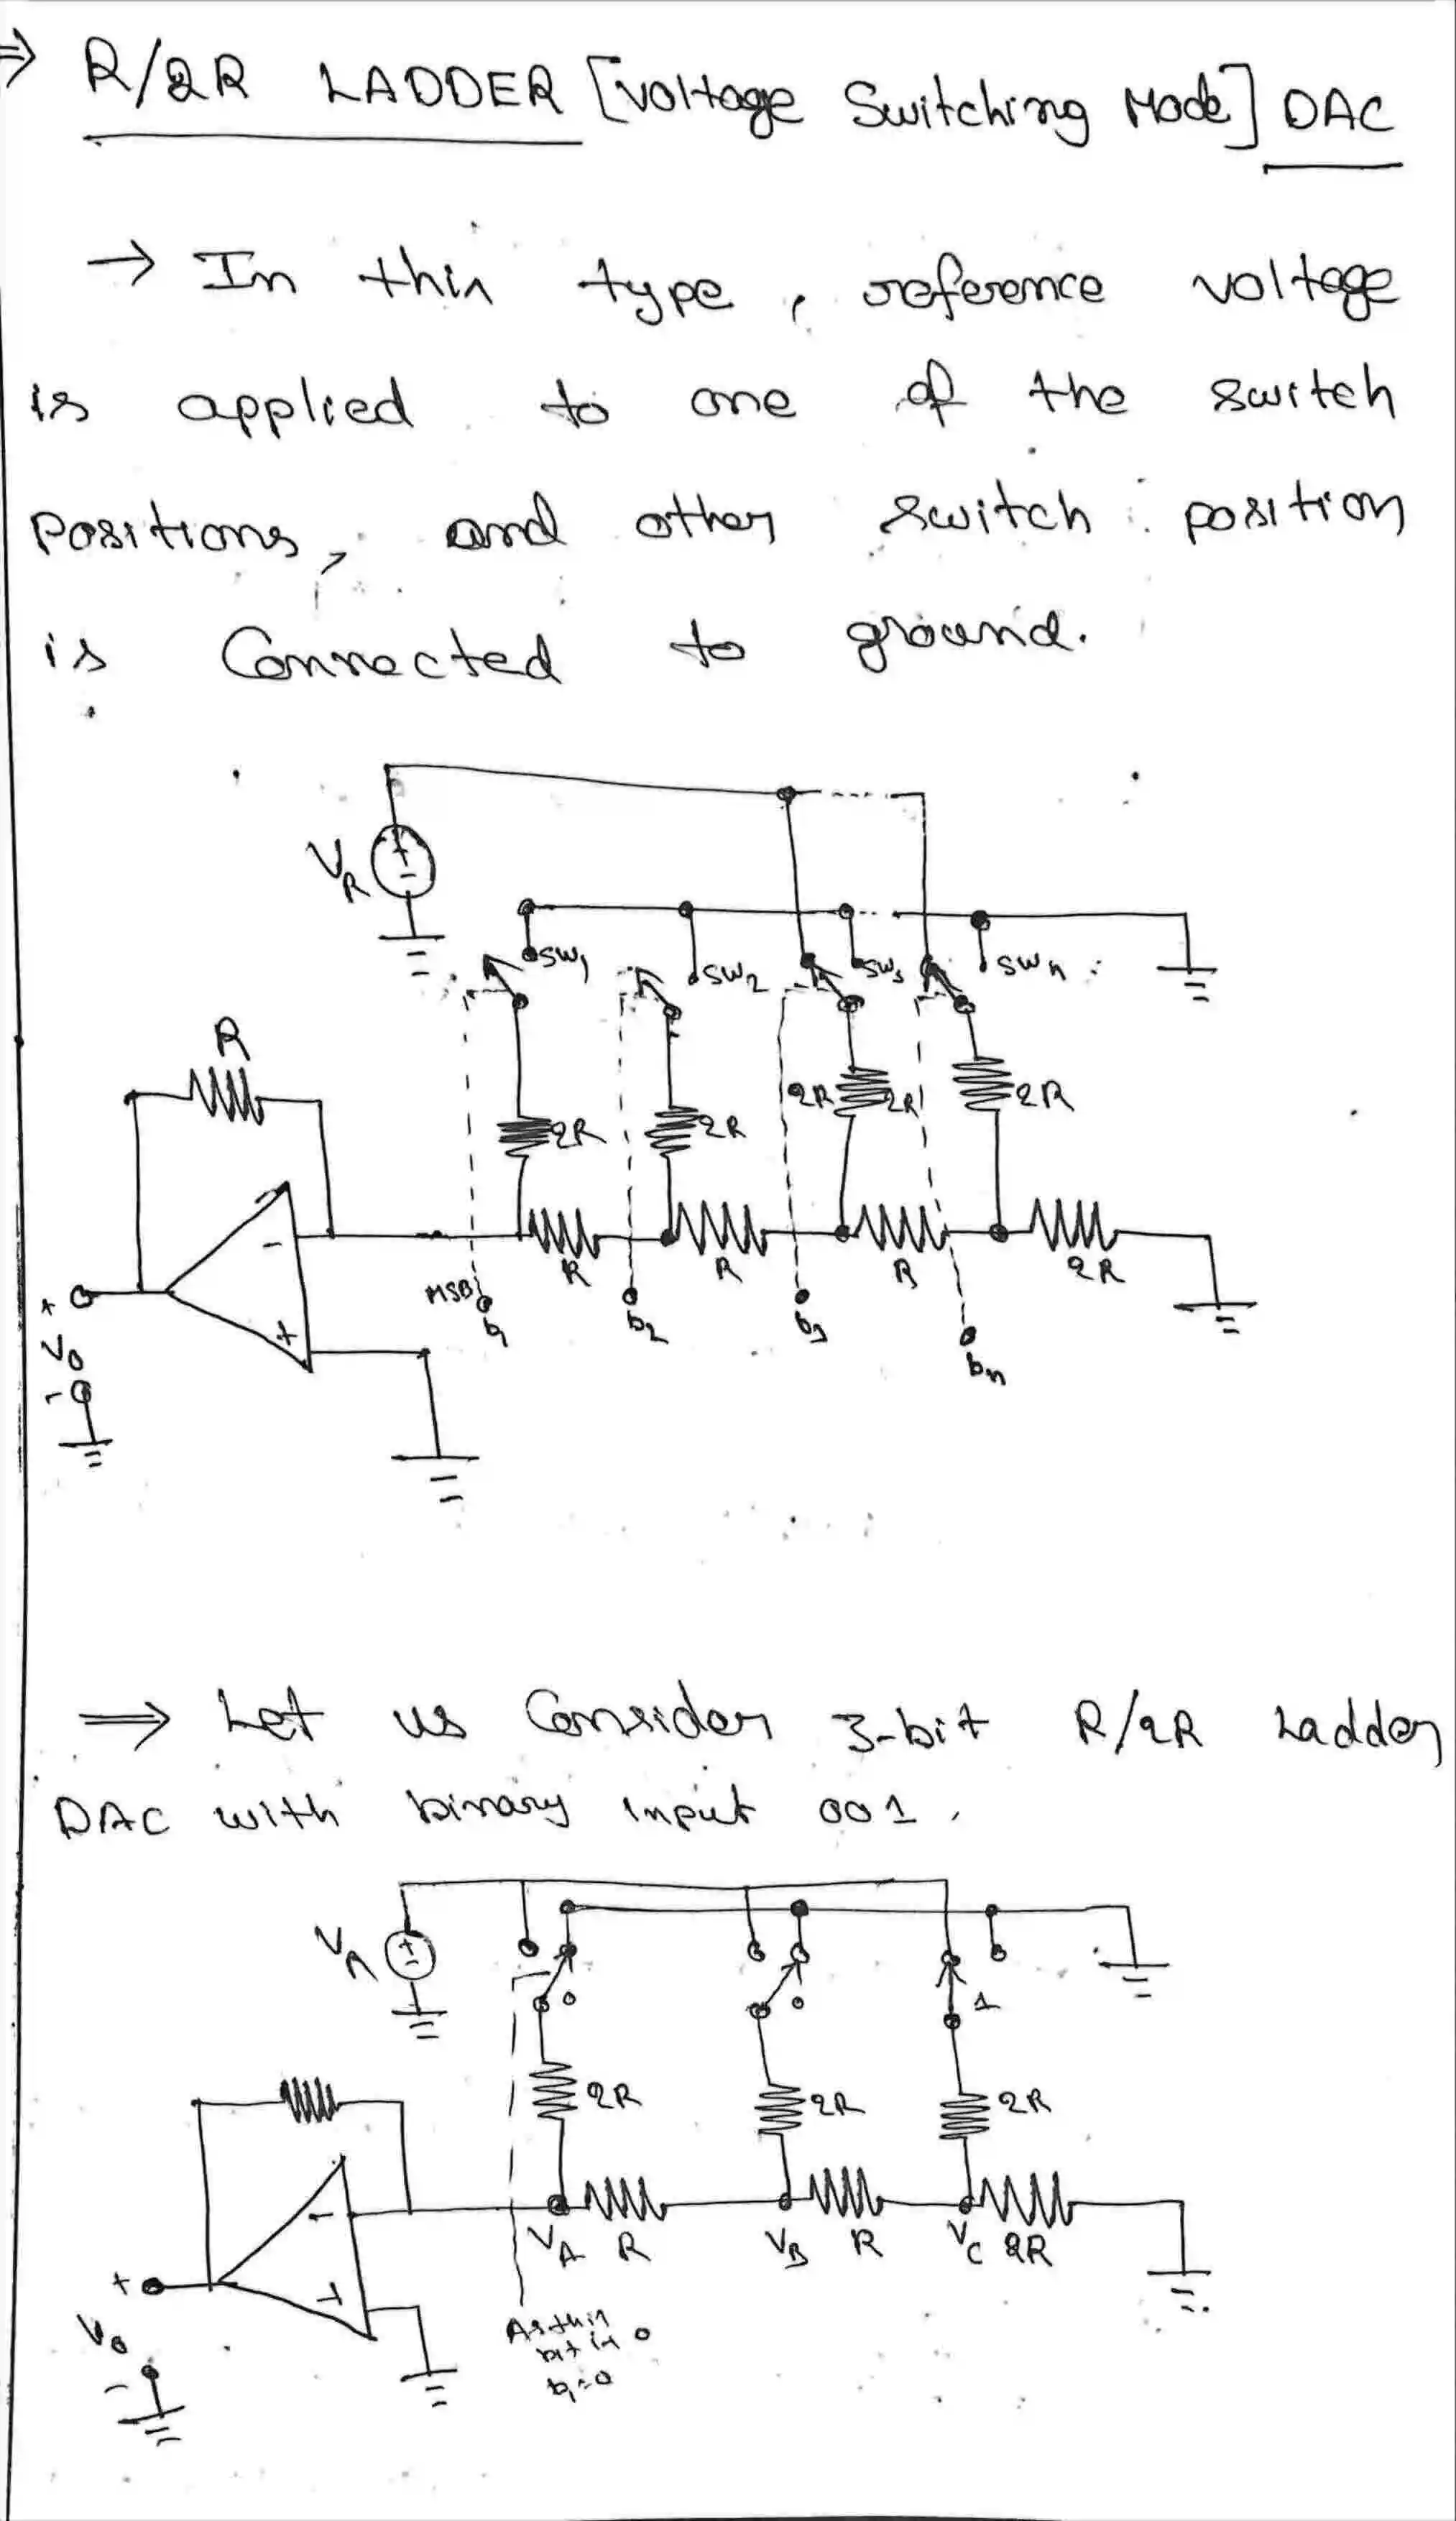 ⇒ R/2R LADDER [Voltage Switching Mode] DAC
→ In this type, reference voltage
is applied to one of the switch
positions, and other switch position
is Connected to ground.
VR
+
-
SW1
SW2
SW3
SWn
R
2R
2R
2R
2R
2R
-
+
R
R
R
2R
MSB
b1
b2
b3
bn
+
V0
-
⇒ Let us Consider 3-bit R/2R Ladder
DAC with binary input 001.
VR
+
-
0
0
1
2R
2R
2R
-
+
VA
R
VB
R
VC
2R
+
V0
-
As this
bit is 0
b1=0